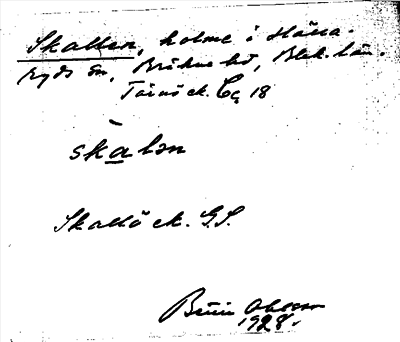 Skallen, holme i Hälla-
ryds sn, Bräkne hd, Blek. län.
Tärnö ek. Cc, 18
skalən
Skallö ek. G.S.
Ohlsson
1928.